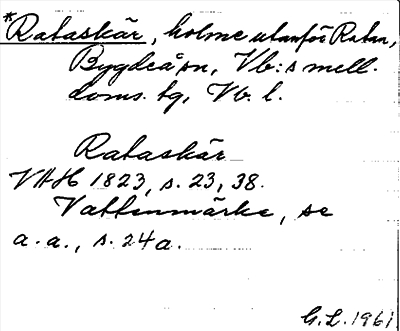 *Rataskär, holme utanför Ratan,
Bygdeå sn, Vb:s mell.
doms. tg, Vb. l.
Rataskär
VAH 1823, s. 23, 38.
Vattenmärke, se
a. a., s. 24 a.
G.L. 1961